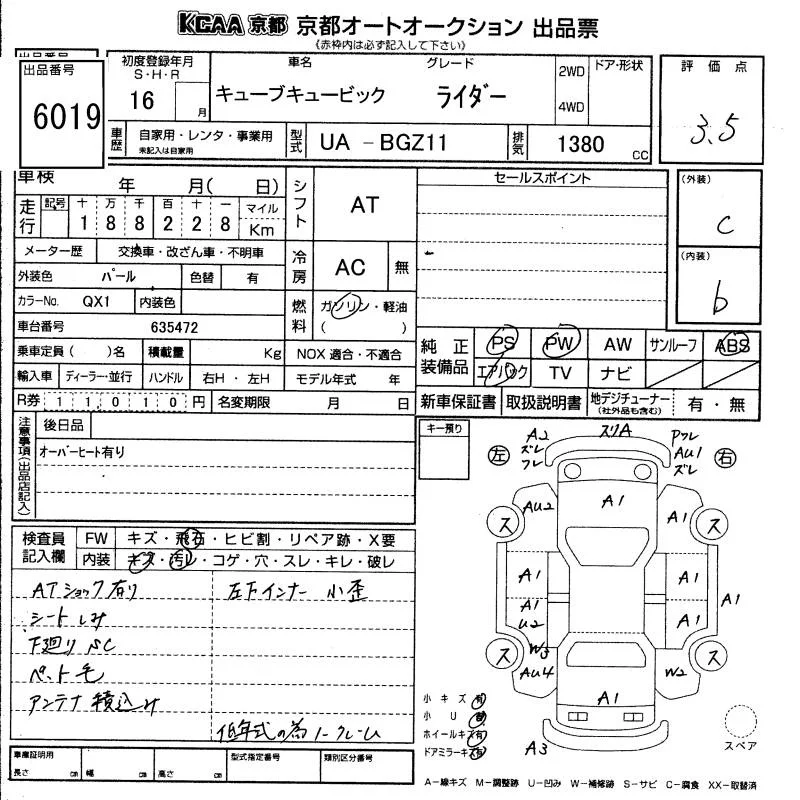 KCAA 京都 京都オートオークション 出品票
(赤枠内は必ず記入して下さい)
出品番号
6019
初度登録年月
S・H・R
16 月
車名
キューブキュービック
グレード
ライダー
2WD
4WD
ドア・形状
評価点
3.5
車歴
自家用・レンタ・事業用
未記入は自家用
型式
UA －BGZ11
排気
1380 CC
車検 年 月( 日)
シフト
AT
セールスポイント
(外装)
C
(内装)
b
走行
記号 十 万 千 百 十 一 マイル
1 8 8 2 2 8 Km
メーター歴 交換車・改ざん車・不明車
冷房
AC 無
外装色 パール 色替 有
カラーNo. QX1 内装色
燃料
ガソリン・軽油
( )
車台番号 635472
乗車定員 ( )名 積載量 Kg NOX 適合・不適合
輸入車 ディーラー・並行 ハンドル 右H・左H モデル年式 年
R券 1 1 0 1 0 円 名変期限 月 日
純正装備品
PS PW AW サンルーフ ABS
エアバック TV ナビ
新車保証書 取扱説明書 地デジチューナー
(社外品も含む)
有・無
注意事項(出品店記入)
後日品
オーバーヒート有り
キー預り
検査員記入欄
FW キズ・飛石・ヒビ割・リペア跡・X要
内装 キズ・汚レ・コゲ・穴・スレ・キレ・破レ
ATショック有り 左下インナー 小歪
シートしみ
下廻りSC
ペット毛
アンテナ積込み
低年式の為ノークレーム
左 右
A2
ズレ
フレ
スリA
Pフレ
AU1
ズレ
AU2
A1
A1
ス ス
A1 A1
A1
U2
A1
A1
W3
AU4
W2
ス ス
A1
A3
小キズ 有
小U 有
ホイールキズ 有
ドアミラーキズ 有
スペア
車庫証明用
長さ cm 幅 cm 高さ cm
型式指定番号
類別区分番号
A－線キズ M－調整跡 U－凹み W－補修跡 S－サビ C－腐食 XX－取替済